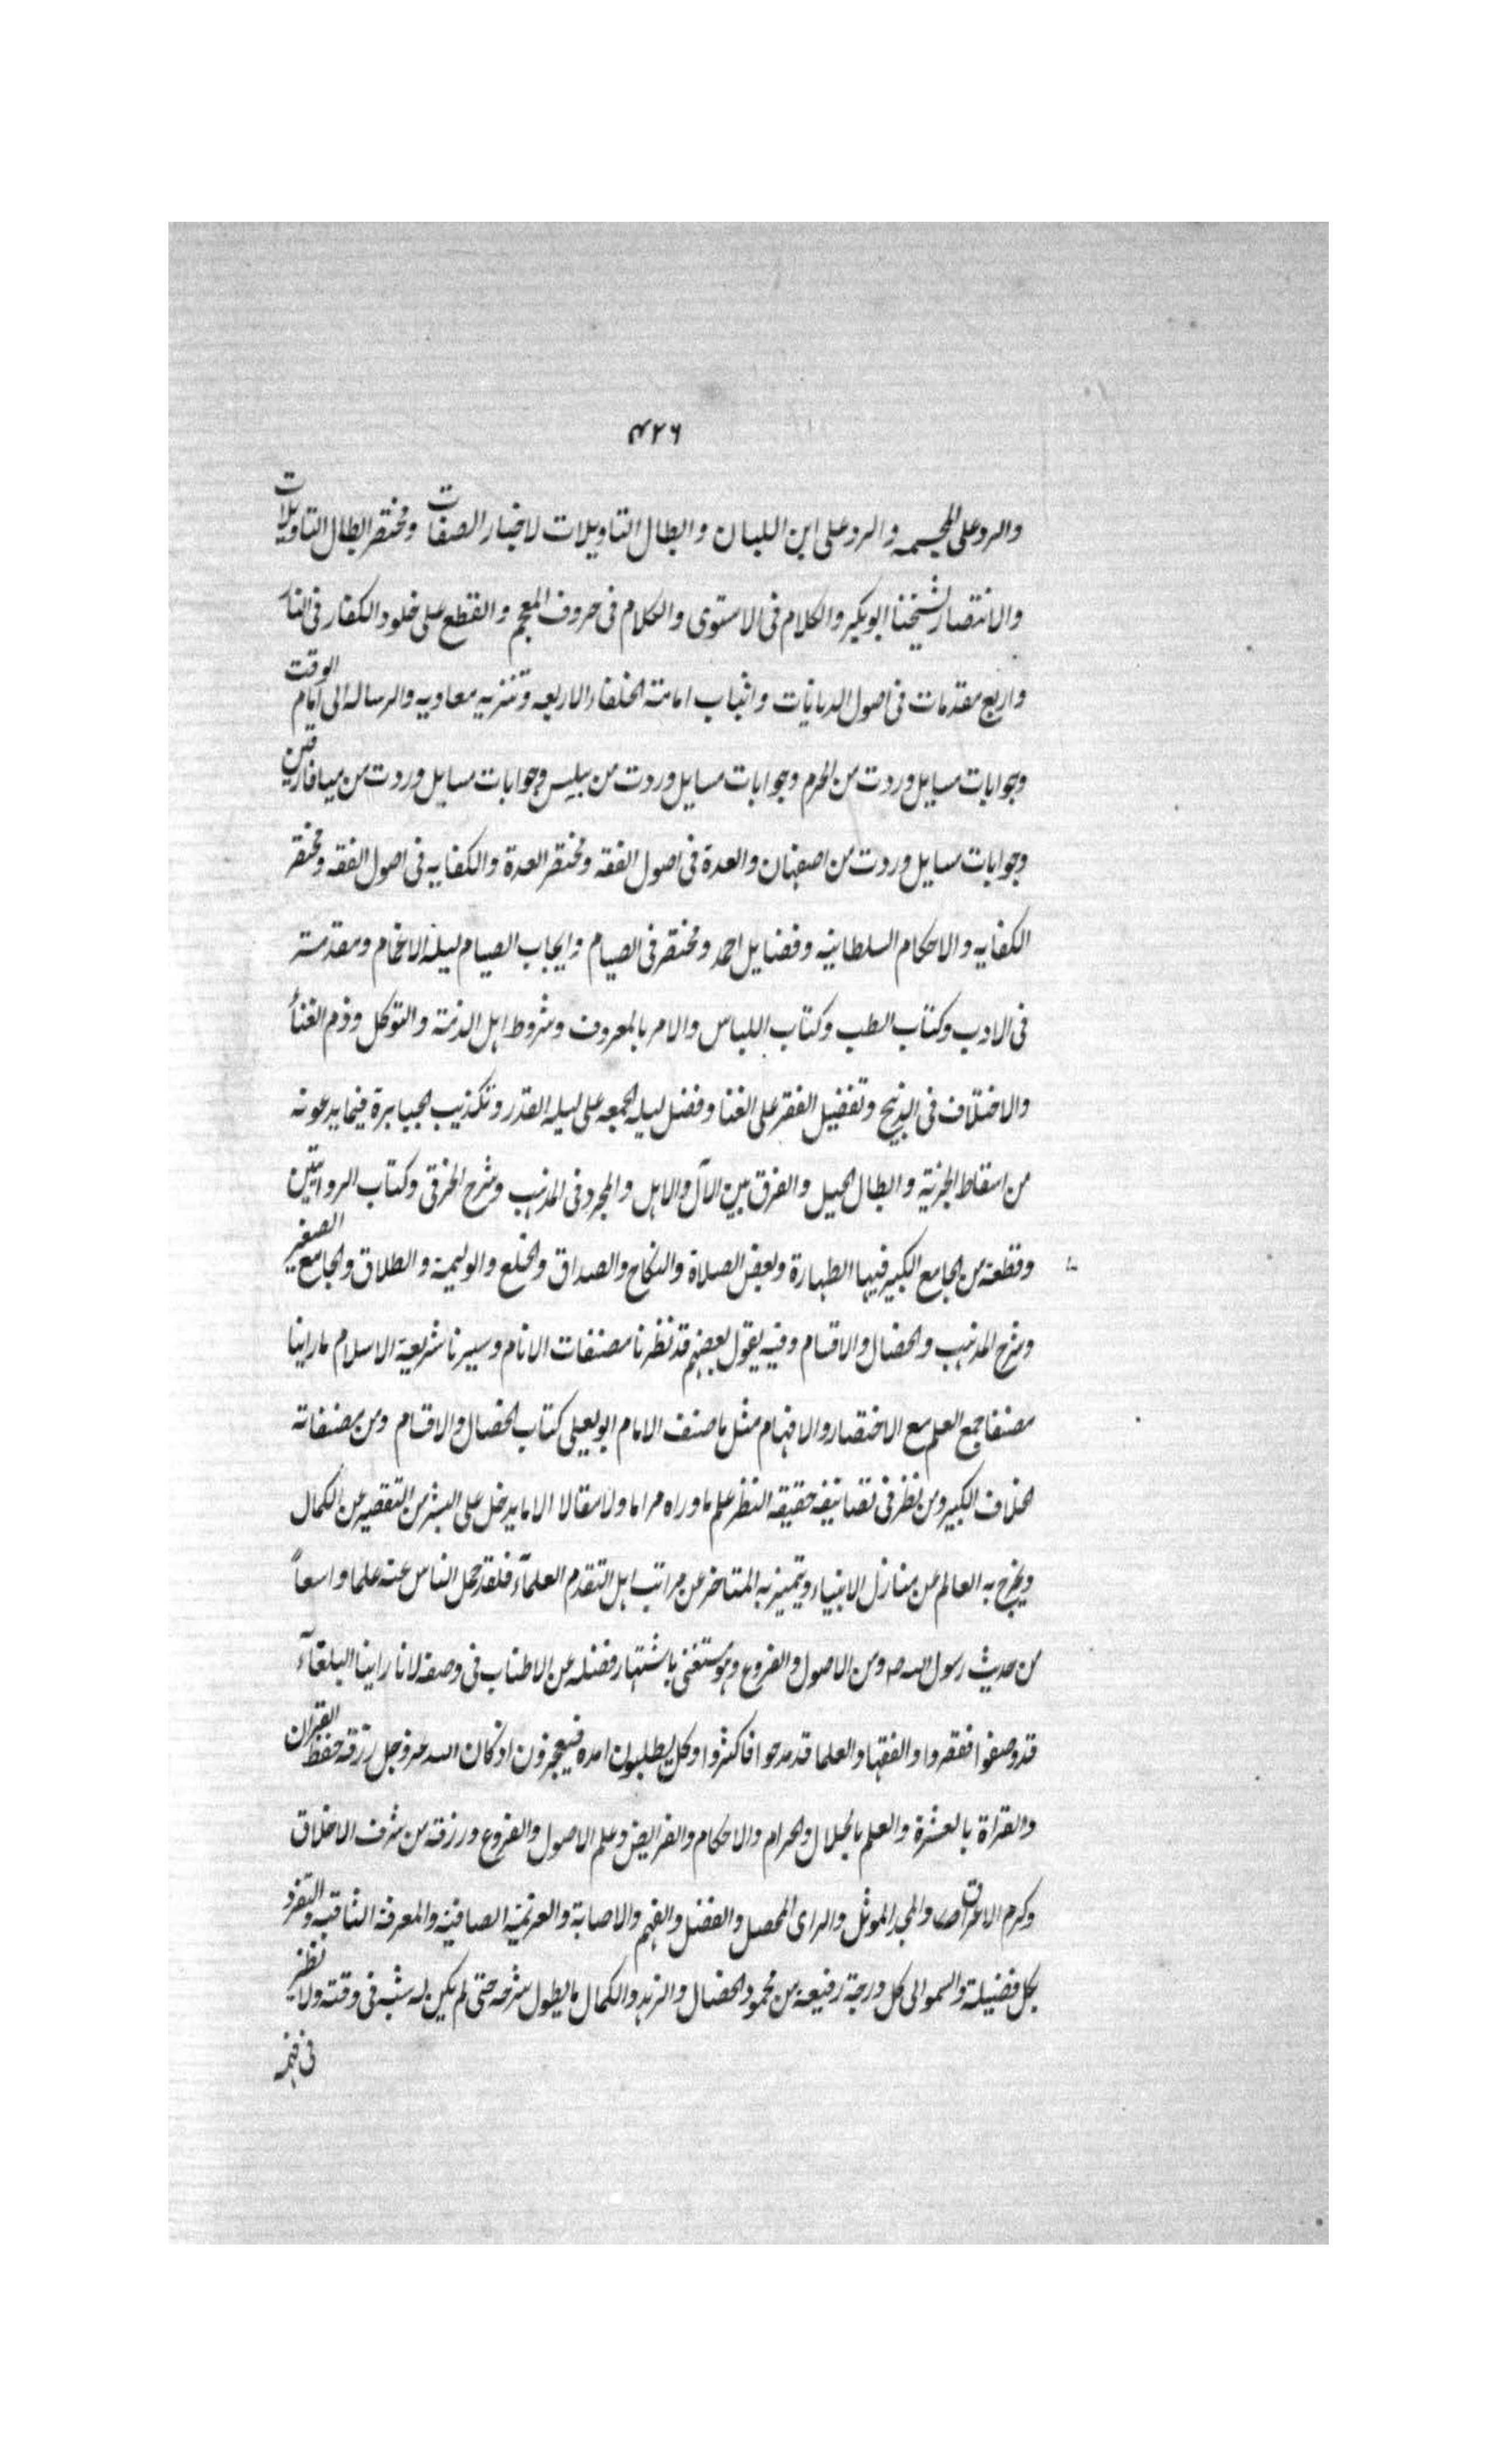 ٤٢٦
والرد على المجسمه والرد على ابن اللبان وابطال التاويلات لاخبار الصفات ومختصر ابطال التاويلات
والانتصار لشيخنا ابو بكر والكلام في الاستوى والكلام في حروف المعجم والقطع على خلود الكفار في النار
واربع مقدمات في اصول الديانات واثبات امامة الخلفاء الاربعه وتنزيه معاويه والرساله الى امام الوقت
وجوابات مسايل وردت من الحرم وجوابات مسايل وردت من وجوابات مسايل وردت من ميافارقين
وجوابات مسايل وردت من اصفهان والعدة في اصول الفقه ومختصر العدة والكفايه في اصول الفقه ومختصر
الكفايه والاحكام السلطانيه وفضايل احمد ومختصر في الصيام وايجاب الصيام ليلة الاغمام ومقدمة
في الادب وكتاب الطب وكتاب اللباس والامر بالمعروف وشروط اهل الذمة والتوكل وذم الغناء
والاختلاف في الذبيح وتفضيل الفقر على الغنا وفضل ليله الجمعه على ليله القدر وتكذيب الخيابرة فيما يدعونه
من اسقاط الجزية وابطال الحيل والفرق بين الآل والاهل والمجرد في المذهب وشرح الخرقي وكتاب الروايتين
وقطعة من الجامع الكبير فيها الطهارة وبعض الصلاة والنكاح والصداق والخلع والوليمة والطلاق والجامع الصغير
وشرح المذهب والخصال والاقسام وفيه يقول بعضهم قد نظرنا مصنفات الانام وسبرنا شريعة الاسلام ما راينا
مصنفا جمع العلم مع الاختصار والافهام مثل ما صنف الامام ابو يعلى كتاب الخصال والاقسام ومن مصنفاته
الخلاف الكبير ومن نظر في تصانيفه حقيقه النظر علم ما وراه مراما ولا مقالا الا ما يدخل على البشر من التقصير عن الكمال
ويخرج به العالم عن منازل الانبياء ويتميز به المتاخر عن مراتب اهل التقدم العلمآء فلقد حمل الناس عنه علما واسعاً
من حديث رسول الله صـ ومن الاصول والفروع وهو مستغنى باشتهار فضله عن الاطناب في وصفه لانا راينا البلغآء
قد وصفوا فقصروا والفقها والعلما قد مدحوا فاكثروا وكل يطلبون امده فيعجزون اذ كان الله عز وجل رزقه حفظ القران
والقراة بالعشرة والعلم بالحلال والحرام والاحكام والفرايض وعلم الاصول والفروع ورزقه من شرف الاخلاق
وكرم الاعراق والمجد الموثل والراى المحصل والفضل والفهم والاصابة والعزيمة الصافية والمعرفة الثاقبه والتفرد
بكل فضيلة والسمو الى كل درجة رفيعة من محمود الخصال والزهد والكمال ما يطول شرحه حتى لم يكن له شبه في وقته ولا نظير
في فهمه